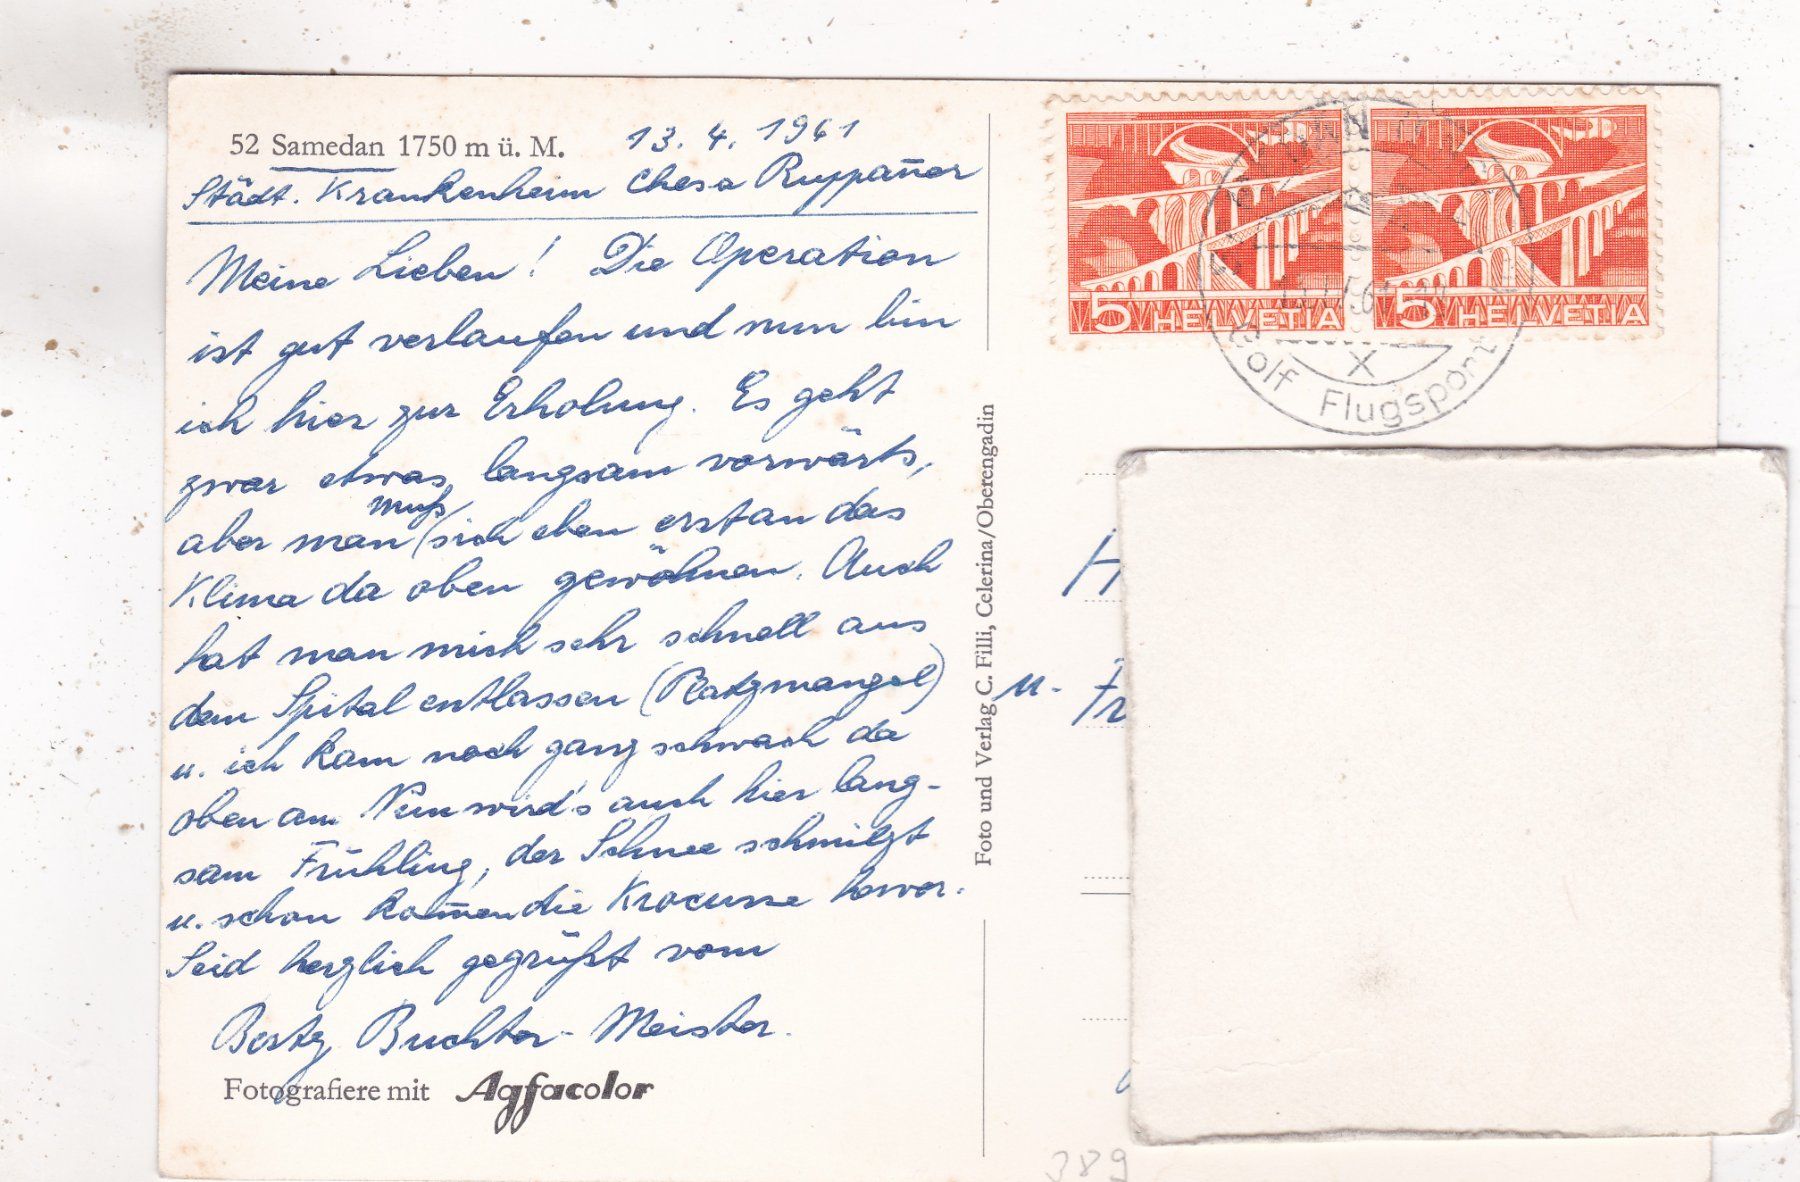 52 Samedan 1750 m ü. M.
13. 4. 1961
Städt. Krankenheim Chesa Ruppaner
Meine Lieben! Die Operation
ist gut verlaufen und nun bin
ich hier zur Erholung. Es geht
zwar etwas langsam vorwärts,
aber man muß sich eben erst an das
Klima da oben gewöhnen. Auch
hat man mich sehr schnell aus
dem Spital entlassen (Platzmangel)
u. ich kam noch ganz schwach da
oben an. Nun wird's auch hier lang-
sam Frühling, der Schnee schmilzt
u. schon kom̄en die Krocusse hervor.
Seid herzlich gegrüßt vom
Buchter-Meister.
Fotografiere mit Agfacolor
Foto und Verlag C. Filli, Celerina/Oberengadin
5 HELVETIA
5 HELVETIA
Golf Flugsport
X
H
u. Fr
389